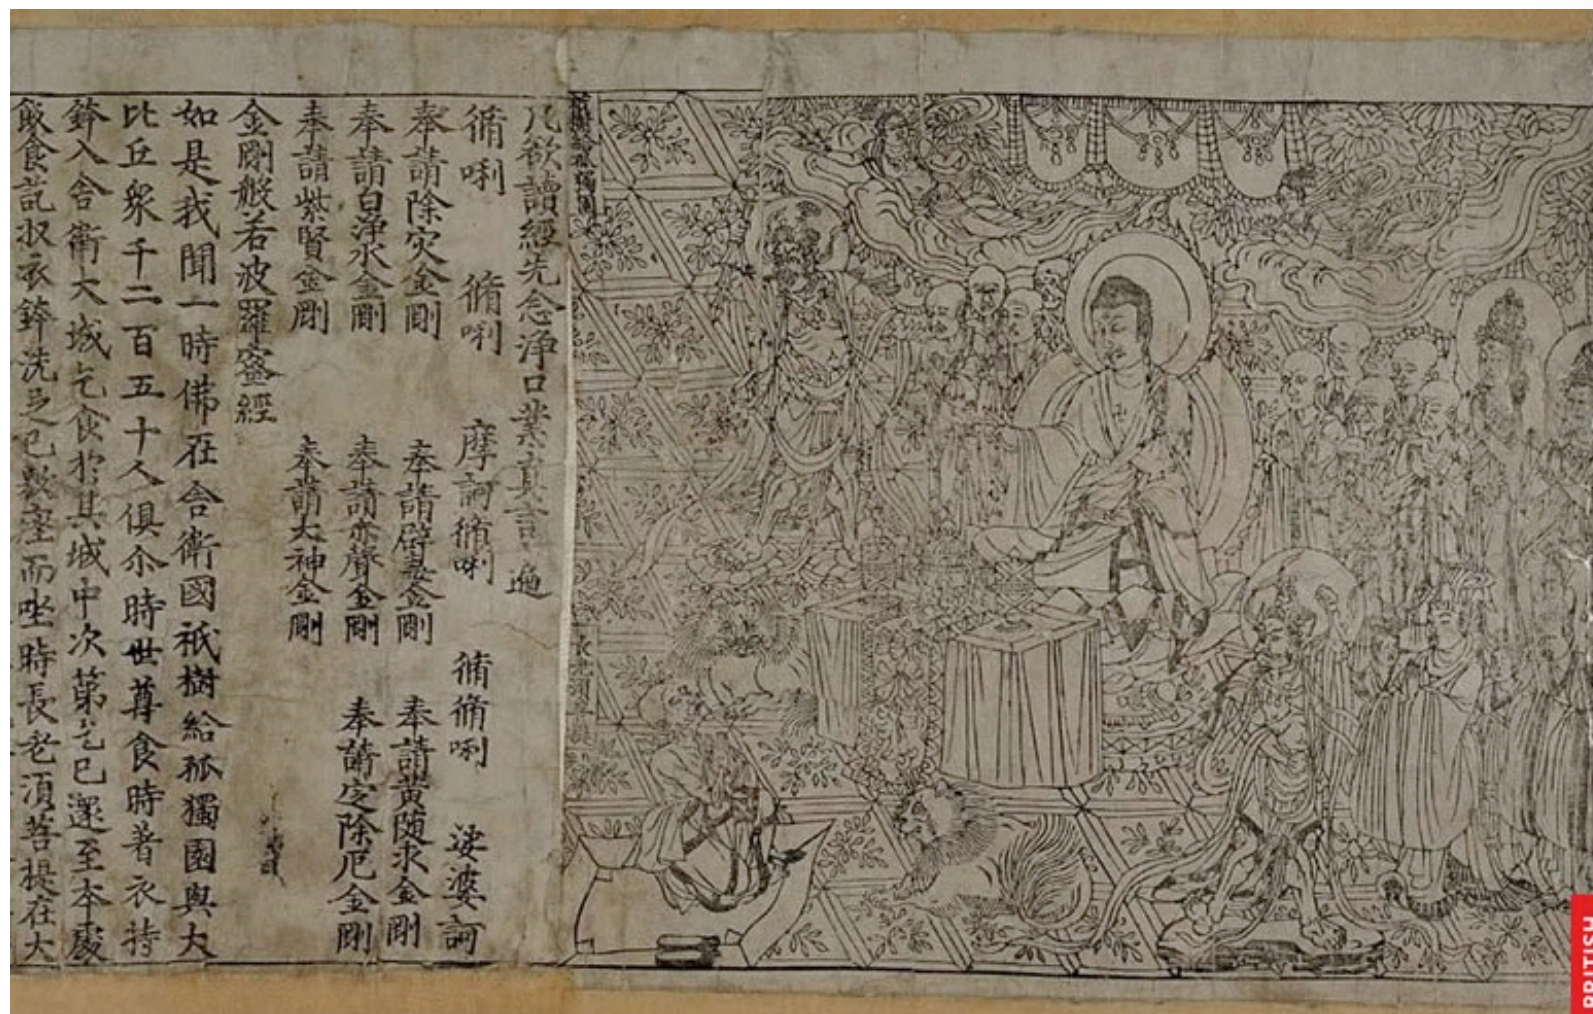 凡欲讀經先念浄口業真言遍
脩唎 脩唎 摩訶脩唎 脩脩唎 娑婆訶
奉請除灾金剛 奉請辟毒金剛 奉請黃随求金剛
奉請白浄水金剛 奉請赤聲金剛 奉請定除厄金剛
奉請紫賢金剛 奉請大神金剛
金剛般若波羅蜜經
如是我聞一時佛在舍衛國祇樹給孤獨園與大
比丘眾千二百五十人俱尒時世尊食時著衣持
鉢入舍衛大城乞食於其城中次第乞已還至本處
飯食訖収衣鉢洗足已敷座而坐時長老須菩提在大
BRITISH